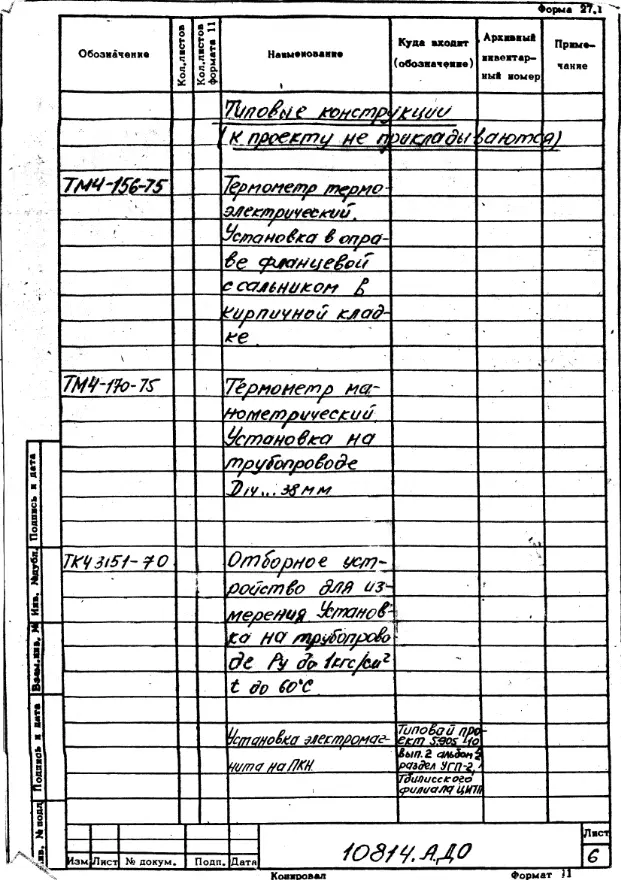 Форма 27.1
Обозначение Кол.листов Кол.листов формата 11 Наименование Куда входит (обозначение) Архивный инвентарный номер Примечание
Типовые конструкции
(к проекту не прикладываются)
ТМ4-156-75 Термометр термо-
электрический.
Установка в опра-
ве фланцевой
с сальником в
кирпичной клад-
ке
ТМ4-170-75 Термометр ма-
нометрический
Установка на
трубопроводе
D14...38мм
ТК4 3151-70 Отборное уст-
ройство для из-
мерения Установ-
ка на трубопрово
де Ру до 1кгс/см²
t до 60°С
Установка электромаг- Типовай про-
нита на ПКН ект 5.905-10
Вып.2 альбом 2
раздел УГП-2,
Тбилисского
филиала ЦИТП
Подпись и дата
Инв. №дубл.
Взам.инв. №
Подпись и дата
Инв. № подл
Изм Лист № докум. Подп. Дата
10814.АДО
Лист
6
Копировал Формат 11